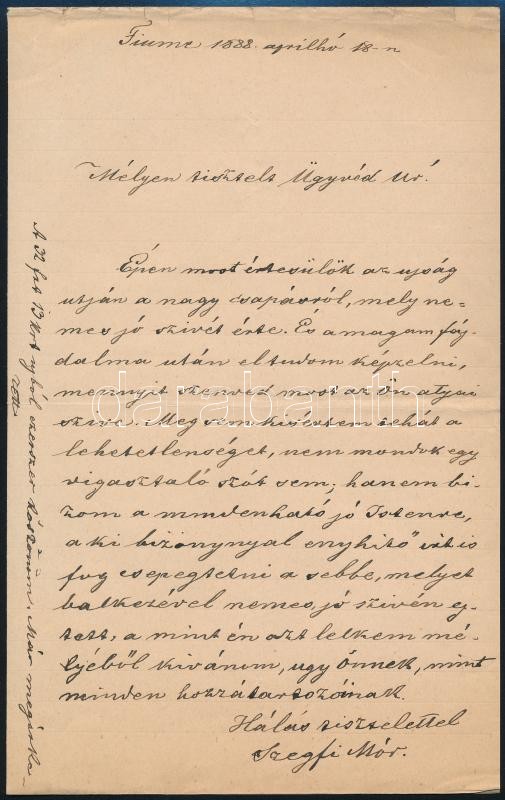 Fiume 1888. aprilhó 18-n
Mélyen tisztelt Ügyvéd Úr!
Épen most értesülök az ujság
utján a nagy csapásról, mely ne-
mes jó szivét érte. És a magam fáj-
dalma után el tudom képzelni,
mennyit szenved most az Ön atyai
szive. Meg sem kisértem tehát a
lehetetlenséget, nem mondok egy
vigasztaló szót sem; hanem bi-
zom a mindenható jó Istenre,
a ki bizonynyal enyhitő irt is
fog csepegtetni a sebbe, melyet
balkezével nemes, jó szivén ej-
tett, a mint én azt lelkem mé-
lyéből kivánom, ugy Önnek, mint
minden hozzátartozóinak.
Hálás tisztelettel
Szegfi Mór.
A 32 frt 13 krt ezerszer köszönöm. Már megérke-
zett
darabanth